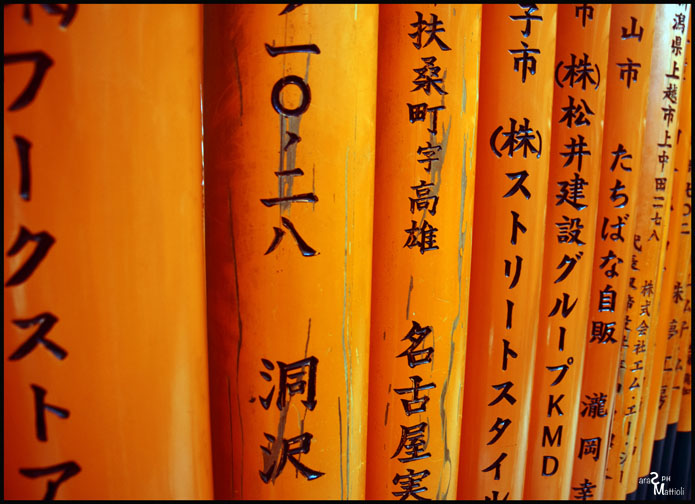 潟県上越市上中田二七八
株式会社エム・エー・シー
山市 たちばな自販 瀧岡幸
市 (株)松井建設グループKMD
子市 (株)ストリートスタイ
扶桑町字高雄 名古屋実
一〇、二八 洞沢
フークストア
araS PH
Mattioli